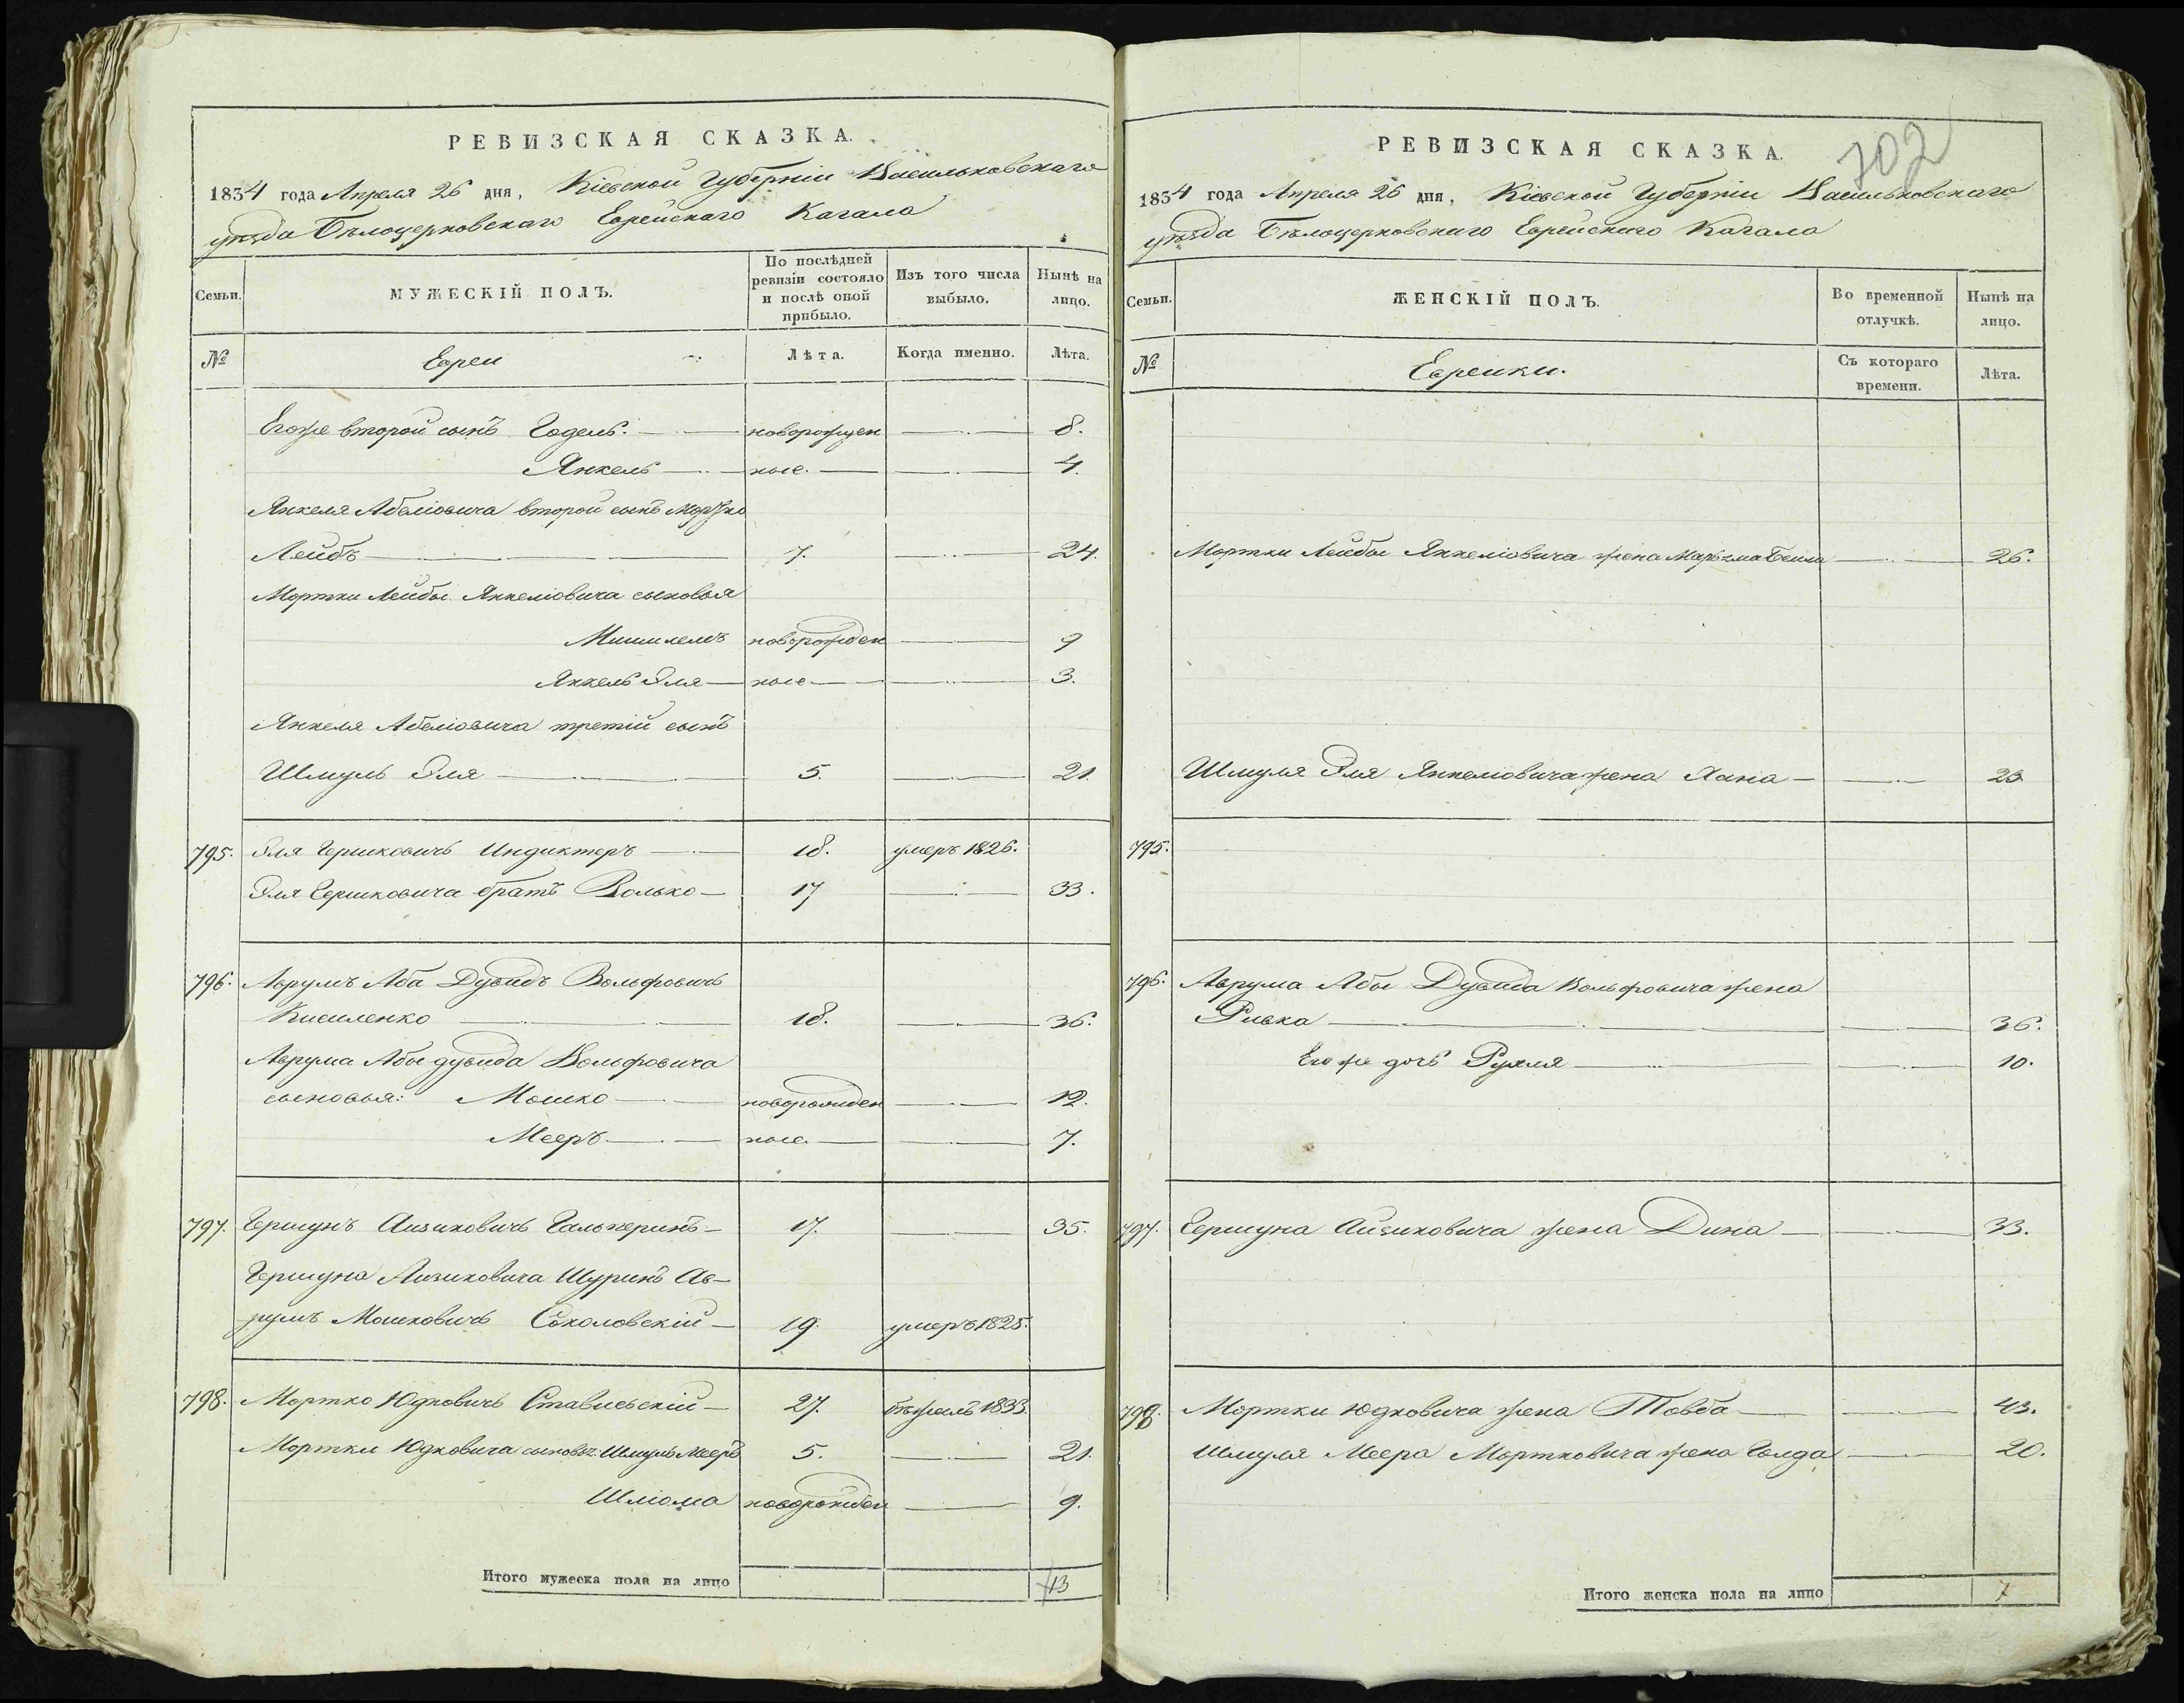 РЕВИЗСКАЯ СКАЗКА.
1834 года Апреля 26 дня, Кіевской Губерніи Васильковскаго
уѣзда Бѣлоцерковскаго Еврейскаго Кагала
Семьи.
МУЖЕСКІЙ ПОЛЪ.
По послѣдней ревизіи состояло и послѣ оной прибыло.
Изъ того числа выбыло.
Нынѣ на лицо.
№
Евреи
Лѣта.
Когда именно.
Лѣта.
Егоже второй сынъ Годель. новорожден 8.
Янкель ные. 4.
Янкеля Абеліовича второй сынъ Мортко
Лейбъ 7. 24.
Мортки Лейбы Янкеліовича сыновья
новорожден 9
Янкель Эля ные 3.
Янкеля Абеліовича третій сынъ
Шмуль Эля 5. 21.
795. Эля Гершковичъ Индиктеръ 18. умеръ 1826.
Эля Гершковича братъ Волько 17 33.
796. Аврумъ Аба Дувидъ Вольфовичъ
Кисиленко 18. 36.
Аврума Абы дувида Вольфовича
сыновья: Мошко новорожден 12.
Мееръ ные. 7.
797. Гершунъ Айзиковичъ Гальперинъ 17. 35.
Гершуна Айзиковича Шуринъ Ав-
румъ Мошковичъ Соколовскій 19. умеръ 1825.
798. Мортко Юдковичъ Ставиский 27. бѣжалъ 1833.
Мортки Юдковича сыновья: Шмуль Мееръ 5. 21.
Шліома новорожден 9.
Итого мужеска пола на лицо 13
РЕВИЗСКАЯ СКАЗКА.
702
1834 года Апреля 26 дня, Кіевской Губерніи Васильковскаго
уѣзда Бѣлоцерковскаго Еврейскаго Кагала
Семьи.
ЖЕНСКІЙ ПОЛЪ.
Во временной отлучкѣ.
Нынѣ на лицо.
№
Еврейки.
Съ котораго времени.
Лѣта.
Мортки Лейбы Янкеліовича жена Бейла 26.
Шмуля Эля Янкеліовича жена Хана 23
795.
796. Аврума Абы Дувида Вольфовича жена
Ривка 36.
Его же дочь Рухля 10.
797. Гершуна Айзиковича жена Дина 33.
798. Мортки Юдковича жена Товба 43.
Шмуля Меера Мортковича жена Голда 20.
Итого женска пола на лицо 7